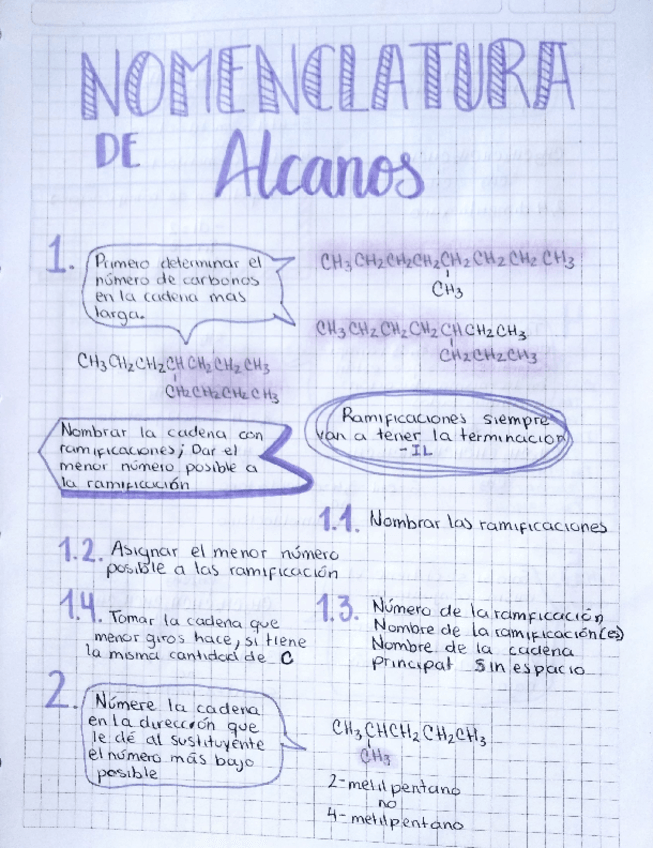 NOMENCLATURA
DE Alcanos
1.
Primero determinar el
número de carbonos
en la cadena mas
larga.
CH3CH2CH2CH2CH2CH2CH2CH3
CH3
CH3CH2CH2CH2CHCH2CH3
CH2CH2CH3
CH3CH2CH2CHCH2CH2CH3
CH2CH2CH2CH3
Nombrar la cadena con
ramificaciones; Dar el
menor número posible a
la ramificación
Ramificaciones siempre
van a tener la terminacion
-IL
1.1. Nombrar las ramificaciones
1.2. Asignar el menor número
posible a las ramificación
1.3. Número de la ramificación
Nombre de la ramificación(es)
Nombre de la cadena
principal sin espacio
1.4. Tomar la cadena que
menor giros hace, si tiene
la misma cantidad de C
2.
Númere la cadena
en la dirección que
le dé al sustituyente
el número más bajo
posible
CH3CHCH2CH2CH3
CH3
2-metilpentano
no
4-metilpentano